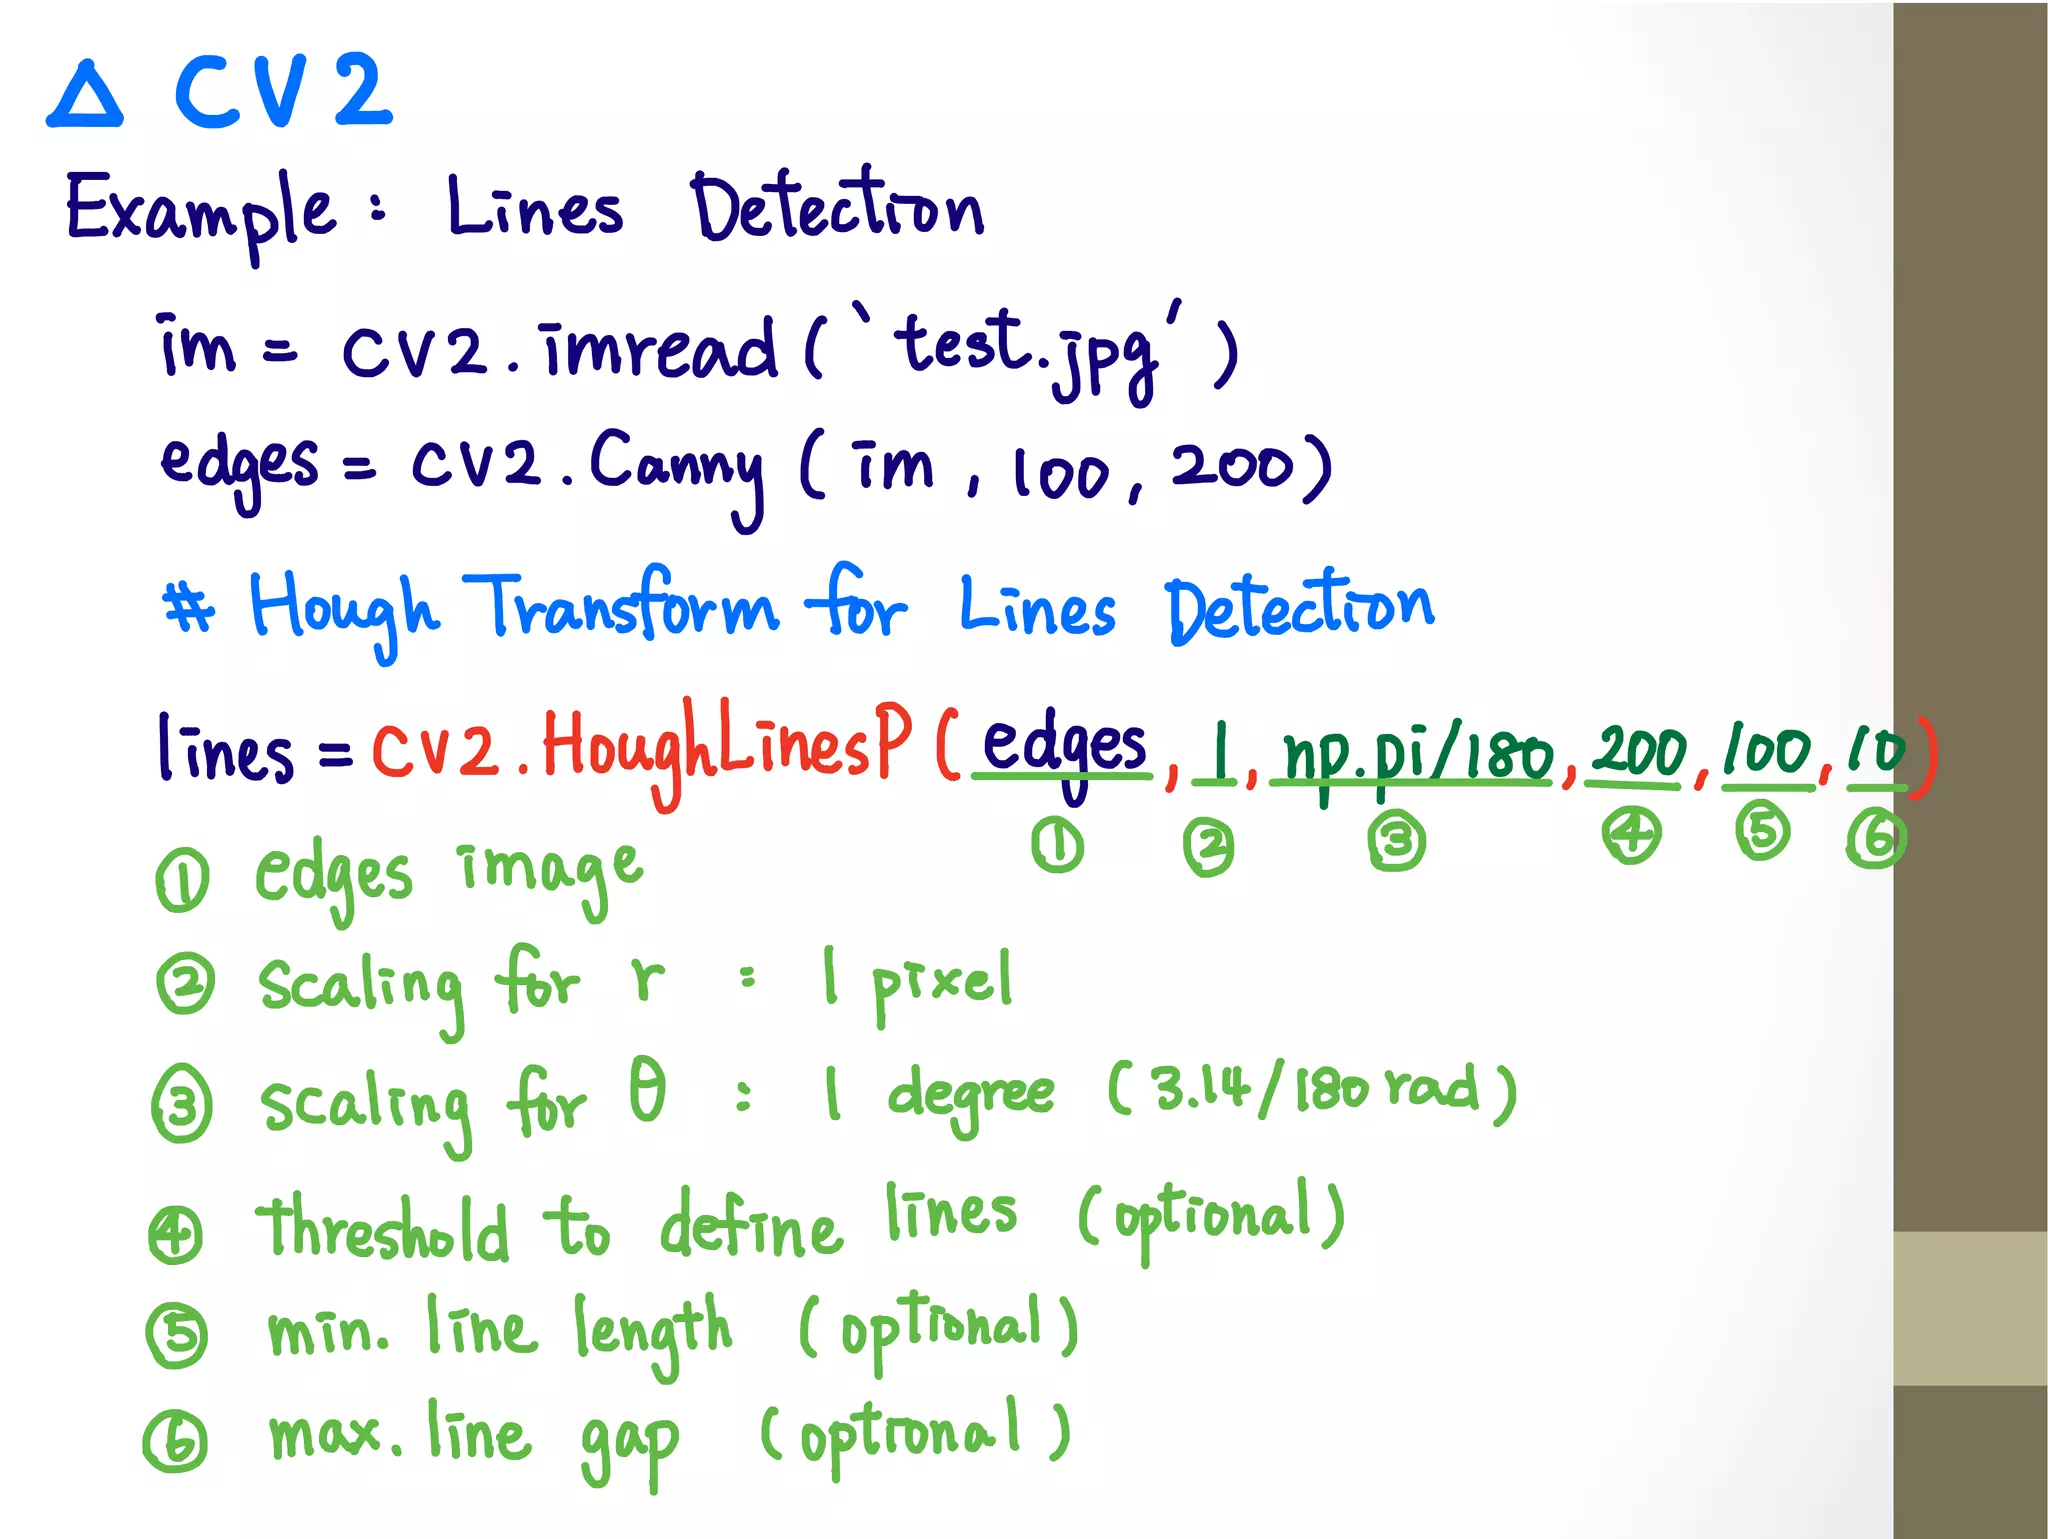 △ CV2
Example: Lines Detection
im = cv2.imread(‘test.jpg’)
edges = cv2.Canny(im, 100, 200)
# Hough Transform for Lines Detection
lines = cv2.HoughLinesP(edges, 1, np.pi/180, 200, 100, 10)
① ② ③ ④ ⑤ ⑥
① edges image
② scaling for r : 1 pixel
③ scaling for θ : 1 degree (3.14/180 rad)
④ threshold to define lines (optional)
⑤ min. line length (optional)
⑥ max. line gap (optional)